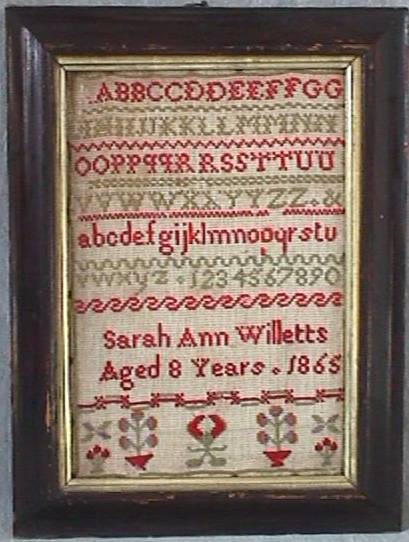 ABBCCDDEEFFGG
HHIIJJKKLLMMNN
OOPPqqRRSSTTUU
VVWWXXYYZZ.&
abcdefgijklmnopqrstu
vwxyz.1234567890
Sarah Ann Willetts
Aged 8 Years.1865